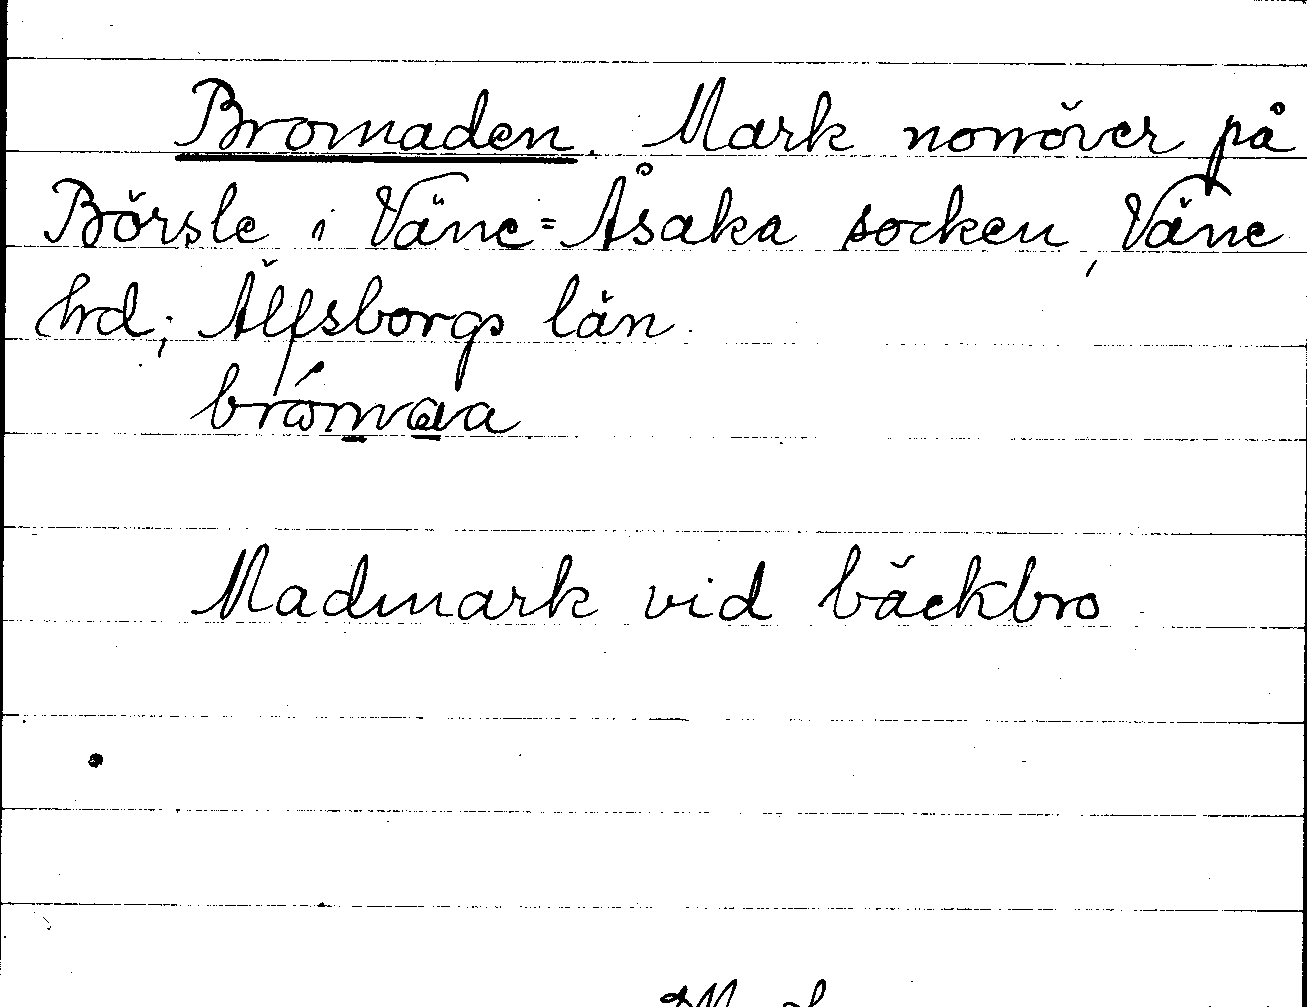 Bromaden. Mark norröver på
Börsle i Väne=Åsaka socken, Väne
hrd; Älfsborgs län.
Madmark vid bäckbro